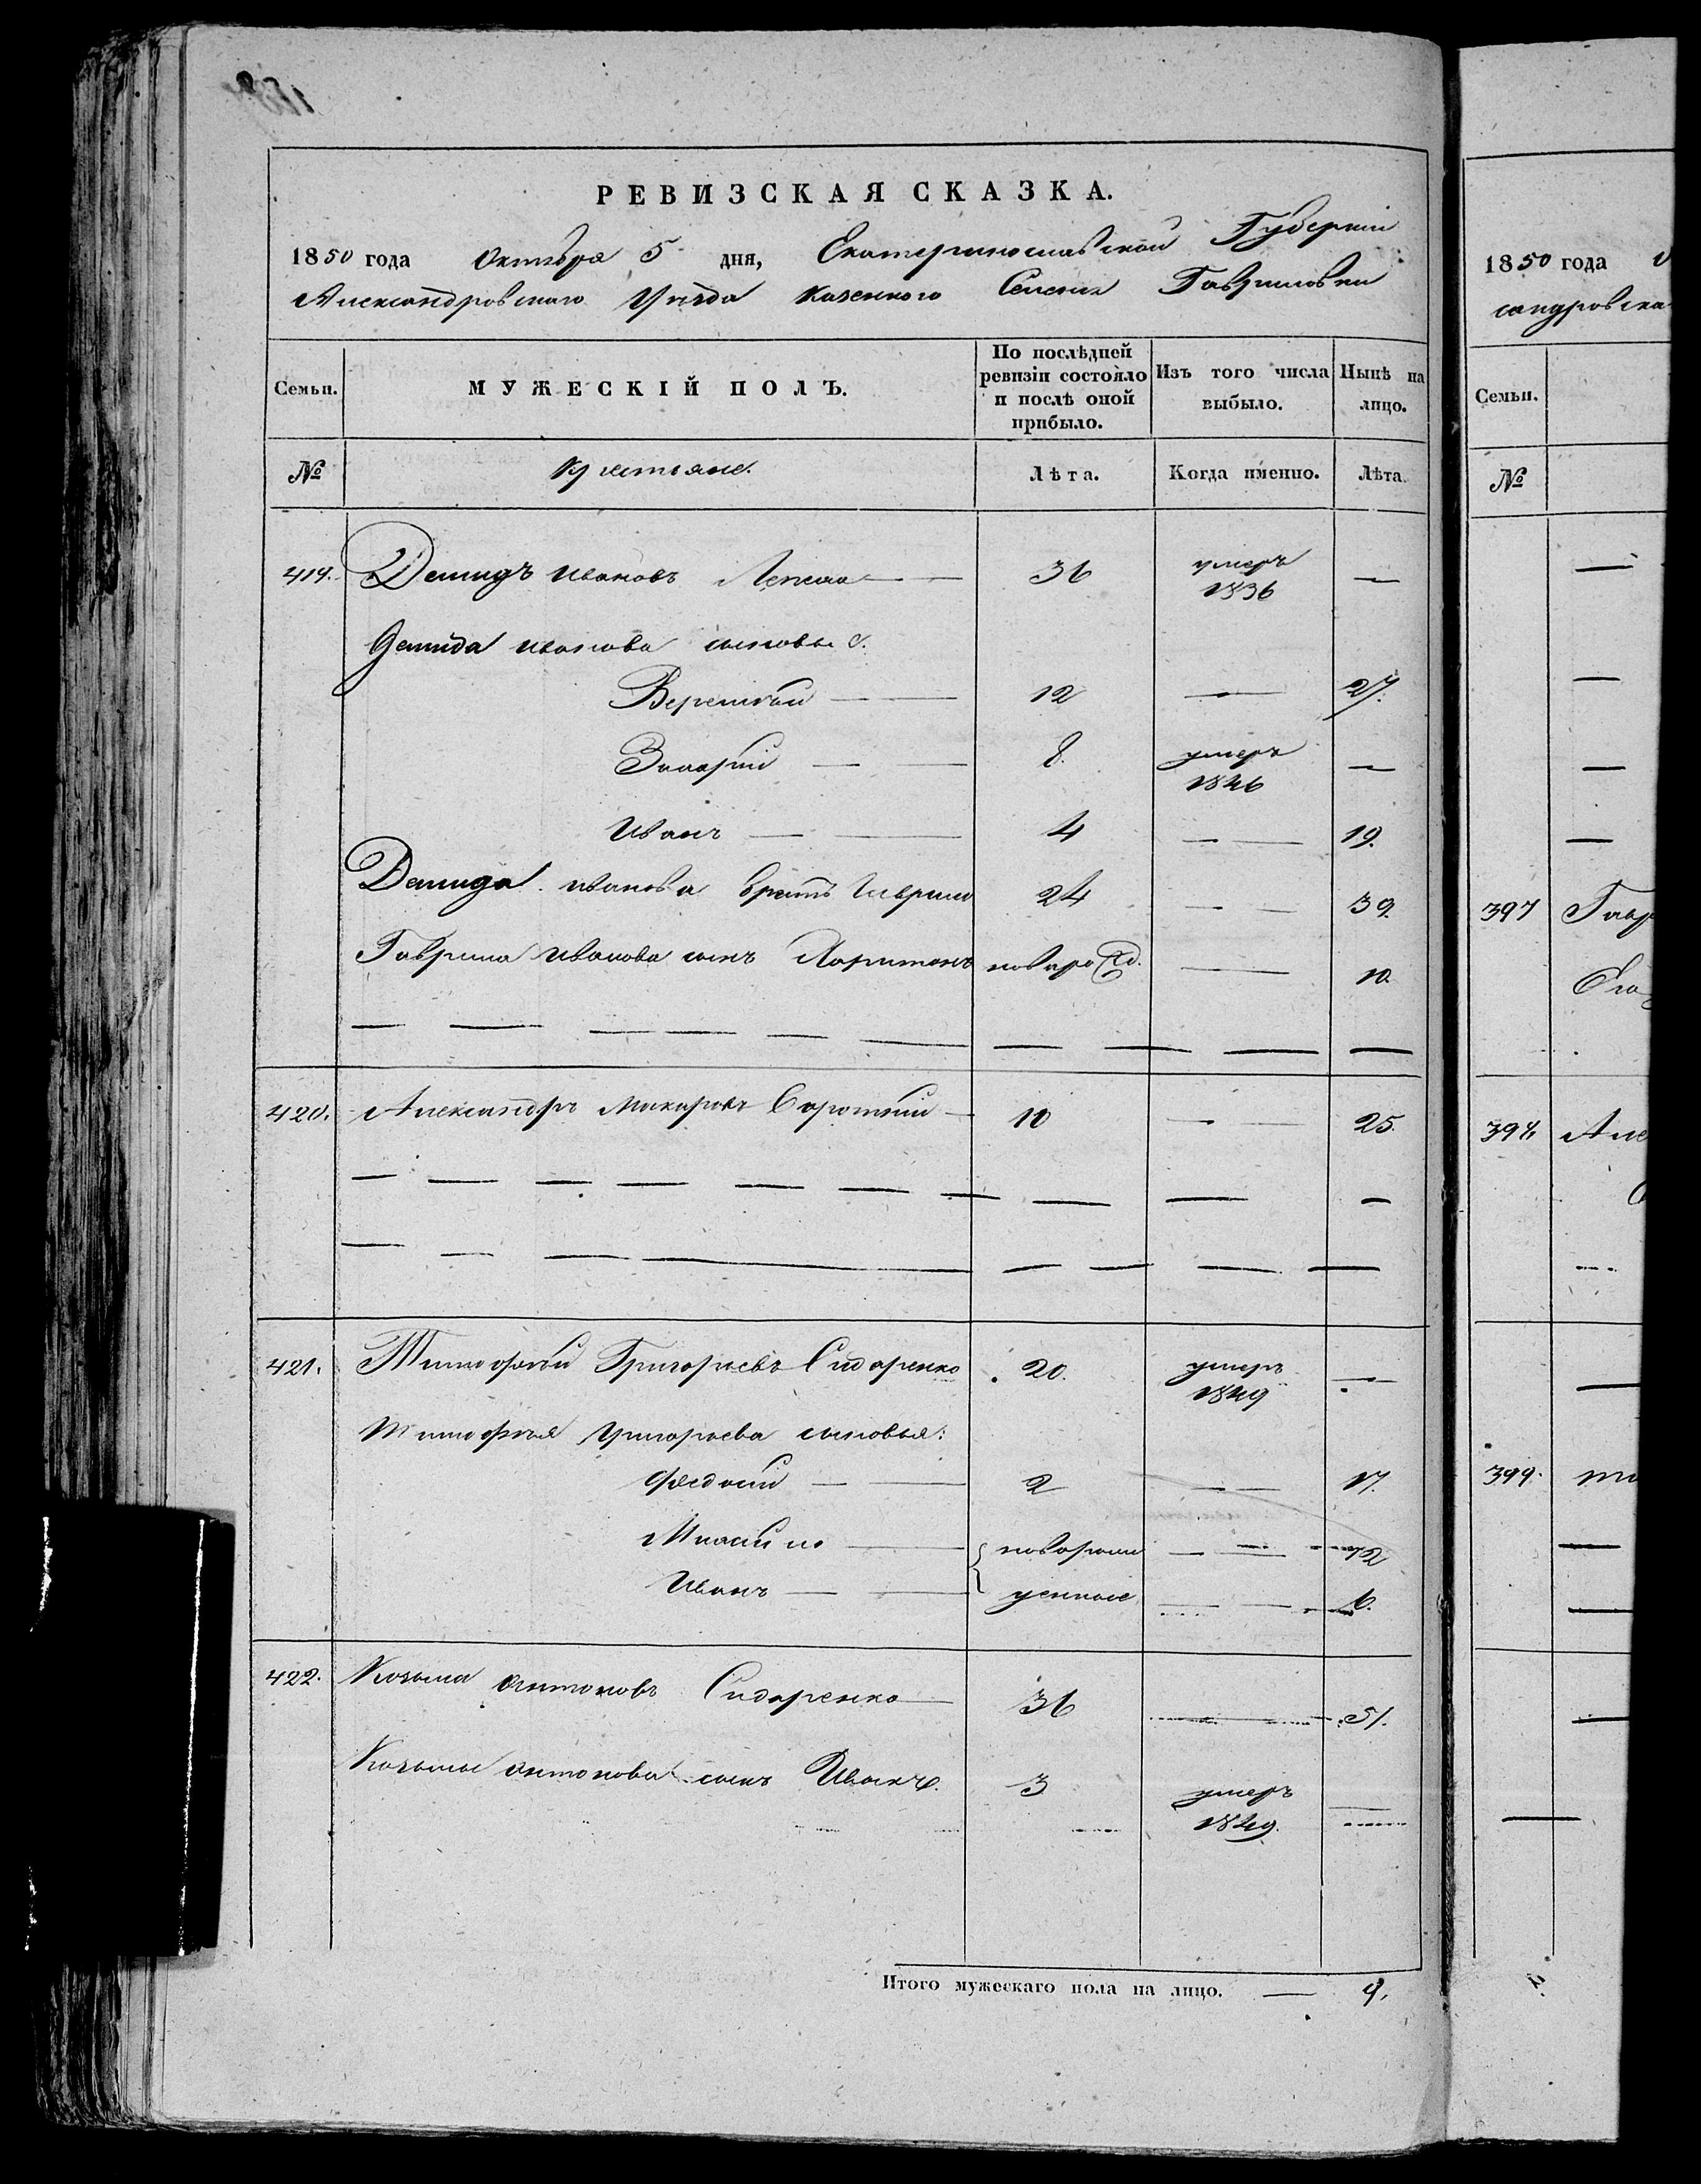 РЕВИЗСКАЯ СКАЗКА.
1850 года Октября 5 дня, Екатеринославской Губернии
Александровского Уѣзда казенного Селения Гавриловки
Семьи.
МУЖЕСКІЙ ПОЛЪ.
По послѣдней ревизіи состояло и послѣ оной прибыло.
Изъ того числа выбыло.
Нынѣ на лицо.
№ Крестьяне. Лѣта. Когда именно. Лѣта.
419. Демидъ Ивановъ 36 умеръ 1836 —
Демида Иванова сыновья
12 — 27.
8. умеръ 1846 —
Иванъ 4 — 19.
Демида Иванова братъ Гаврило 24 — 39.
Гаврила Иванова сынъ Харитонъ новорожд. — 10.
420. Александръ Макаровъ 10 — 25.
421. Тимофей Григорьевъ Сидоренко 20. умеръ 1849 —
Тимофея Григорьева сыновья:
Федосий 2 — 17.
{ новорож — 12
Иванъ денные — 6.
422. Козьма Антоновъ Сидоренко 36 — 51.
Козьмы Антонова сынъ Иванъ. 3 умеръ 1849. —
Итого мужескаго пола на лицо. — 9.
1850 года
сандровска
Семьи.
№
397 Гавр
398 Але
399.